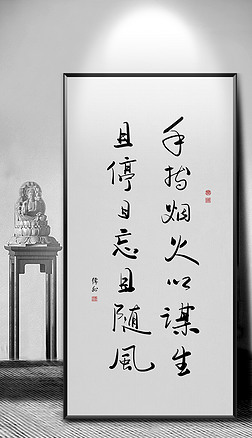 手持烟火以谋生
且停且忘且随风